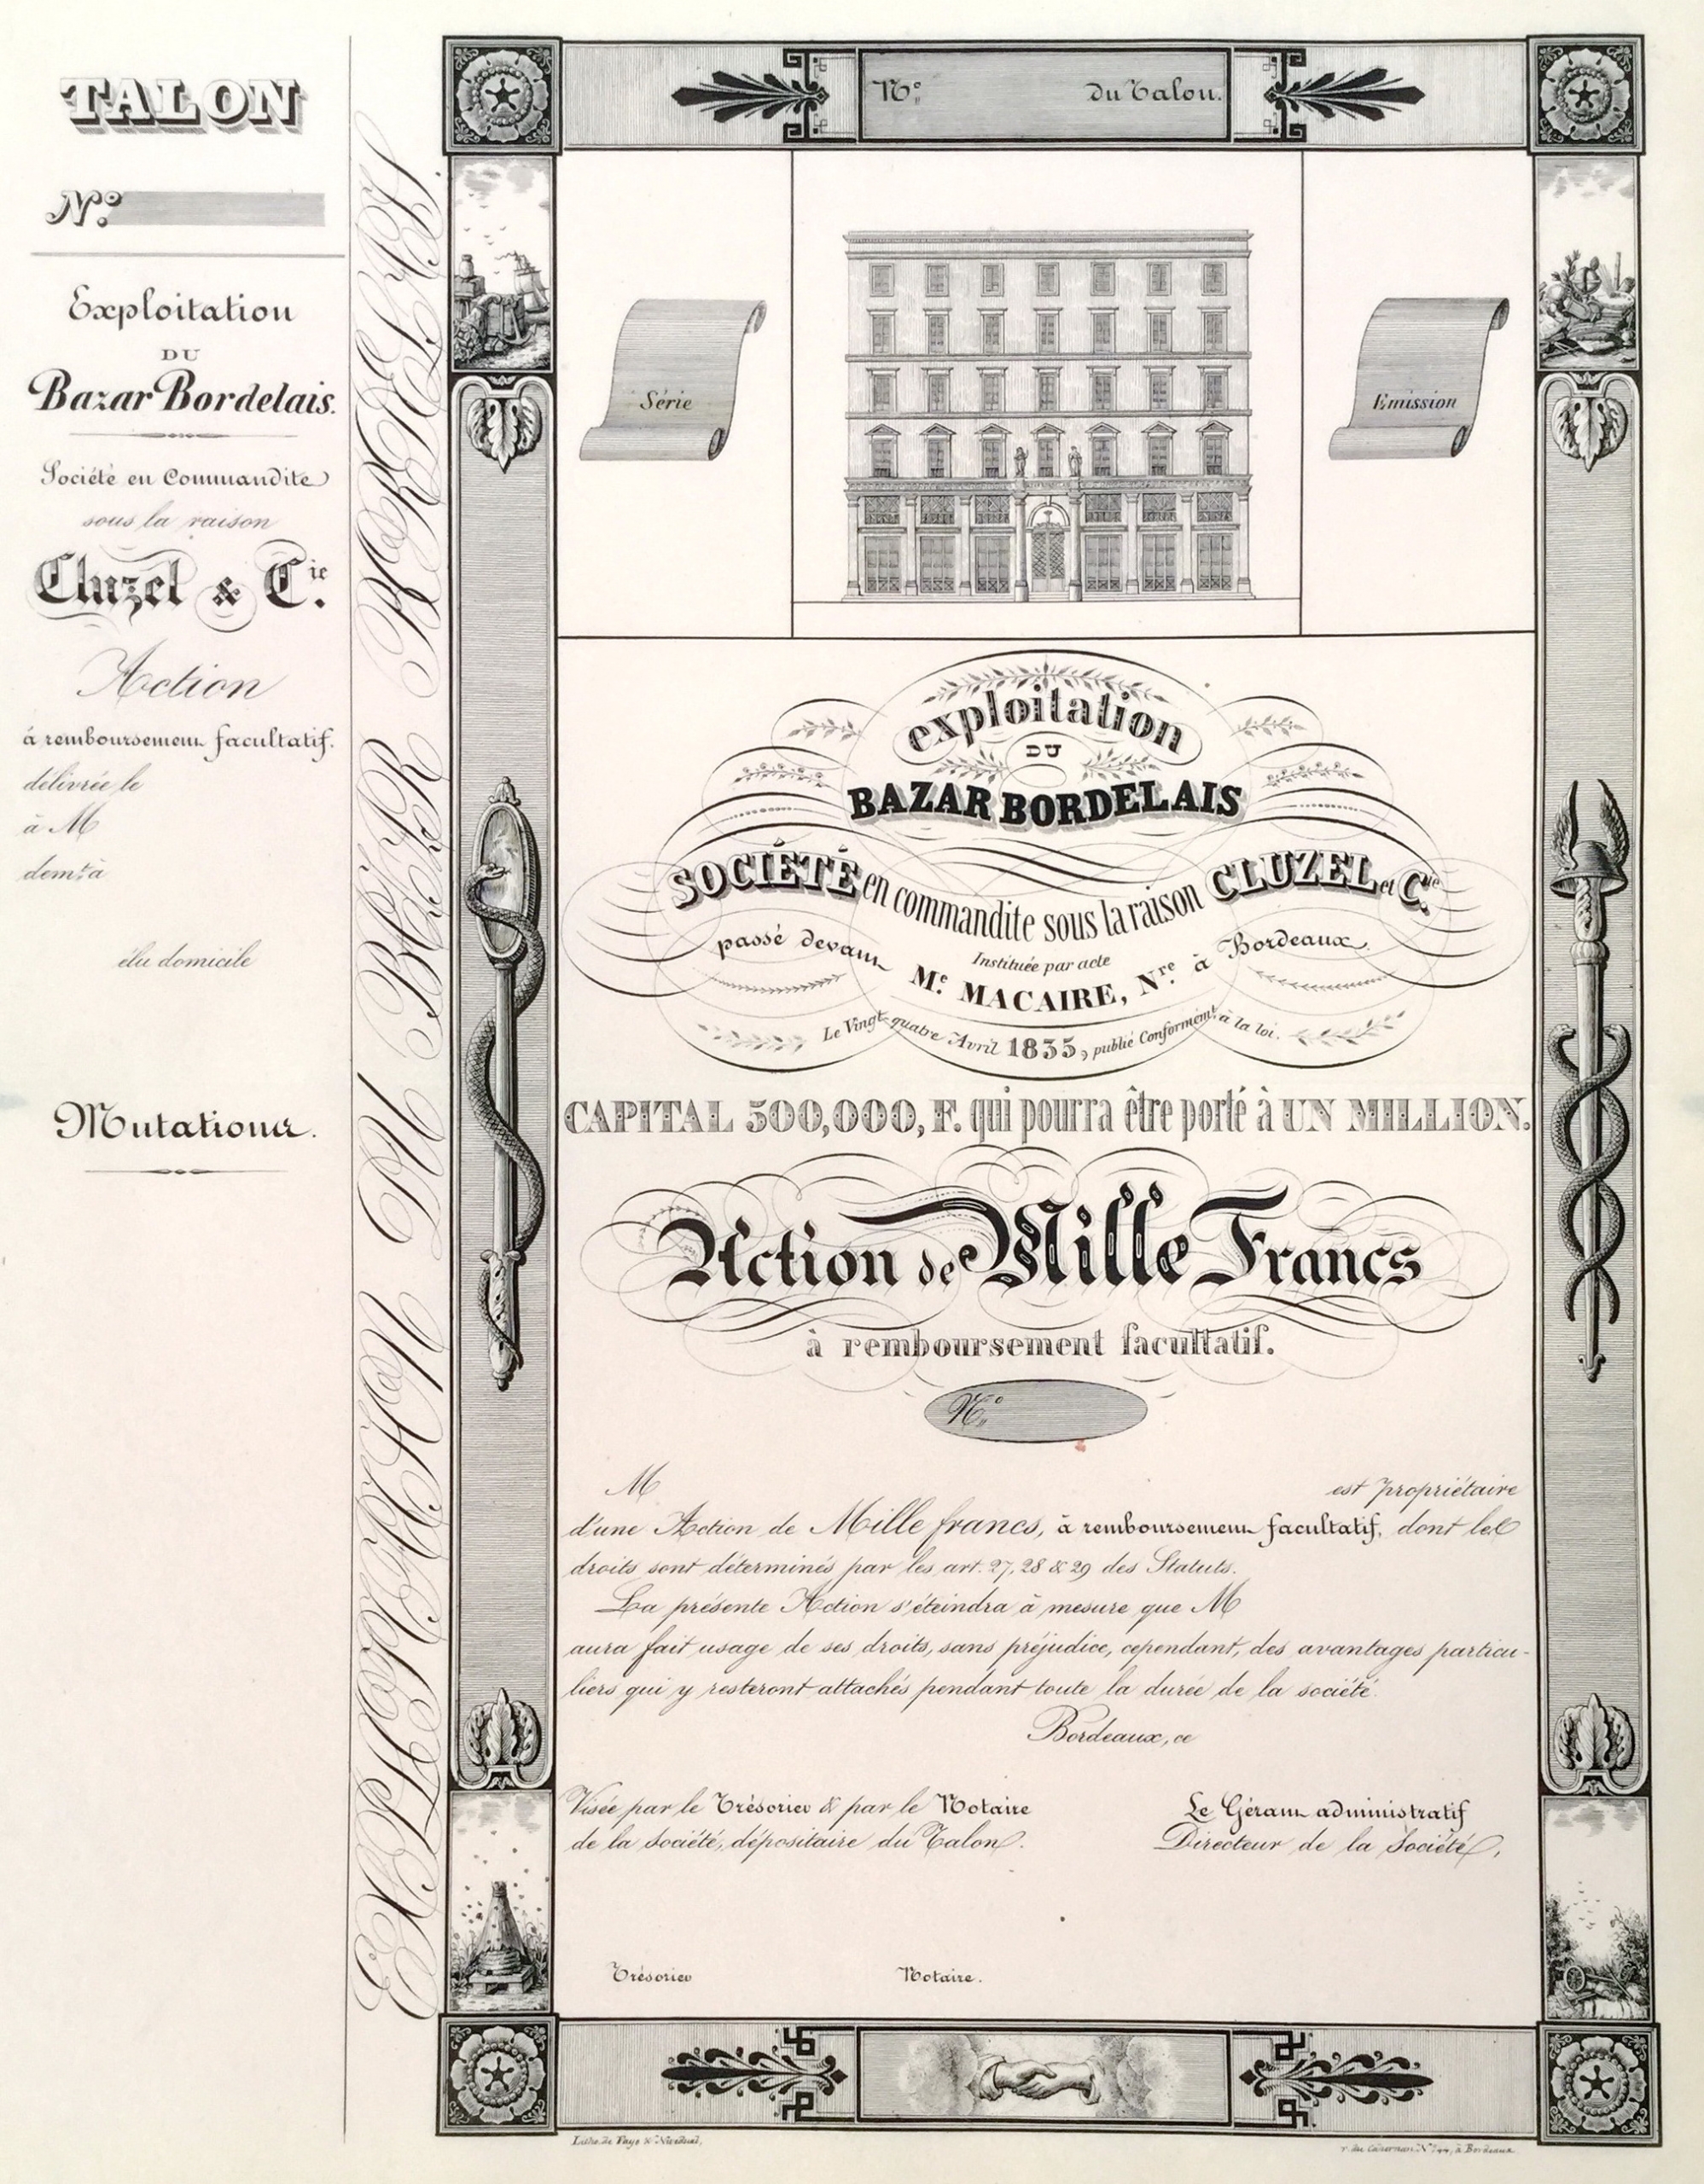 TALON
N.º
Exploitation
DU
Bazar Bordelais.
Société en Commandite
sous la raison
Cluzel & C.ie
Action
à remboursement facultatif.
délivrée le
à M
dem.t à
élu domicile
Mutations.
EXPLOITATION DU BAZAR BORDELAIS.
N.º du Talon.
Série
Emission
exploitation
DU
BAZAR BORDELAIS
SOCIÉTÉ en commandite sous la raison CLUZEL et C.ie
Instituée par acte
passé devant M.e MACAIRE, N.re à Bordeaux,
Le Vingt-quatre Avril 1835, publié Conformém.t à la loi.
CAPITAL 500,000, F. qui pourra être porté à UN MILLION.
Action de Mille Francs
à remboursement facultatif.
N.º
M est Propriétaire
d'une Action de Mille francs, à remboursement facultatif, dont les
droits sont déterminés par les art. 27, 28 & 29 des Statuts.
La présente Action s'éteindra à mesure que M
aura fait usage de ses droits, sans préjudice, cependant, des avantages particu-
liers qui y resteront attachés pendant toute la durée de la société.
Bordeaux, ce
Visée par le Trésorier & par le Notaire
de la Société, dépositaire du Talon.
Le Gérant administratif
Directeur de la Société,
Trésorier
Notaire.
Litho. de Faye &
N.º 44, à Bordeaux